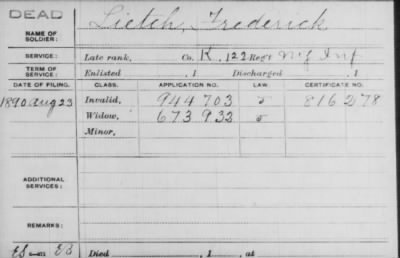 DEAD
NAME OF SOLDIER: Lietch, Frederick
SERVICE: Late rank, Co. K, 122 Reg't N.Y. Inf
TERM OF SERVICE: Enlisted , 1 Discharged , 1
DATE OF FILING. CLASS. APPLICATION NO. LAW. CERTIFICATE NO.
1890 Aug 23 Invalid, 944 703 816 278
Widow, 673 932
Minor,
ADDITIONAL SERVICES:
REMARKS:
Died , 1 , at